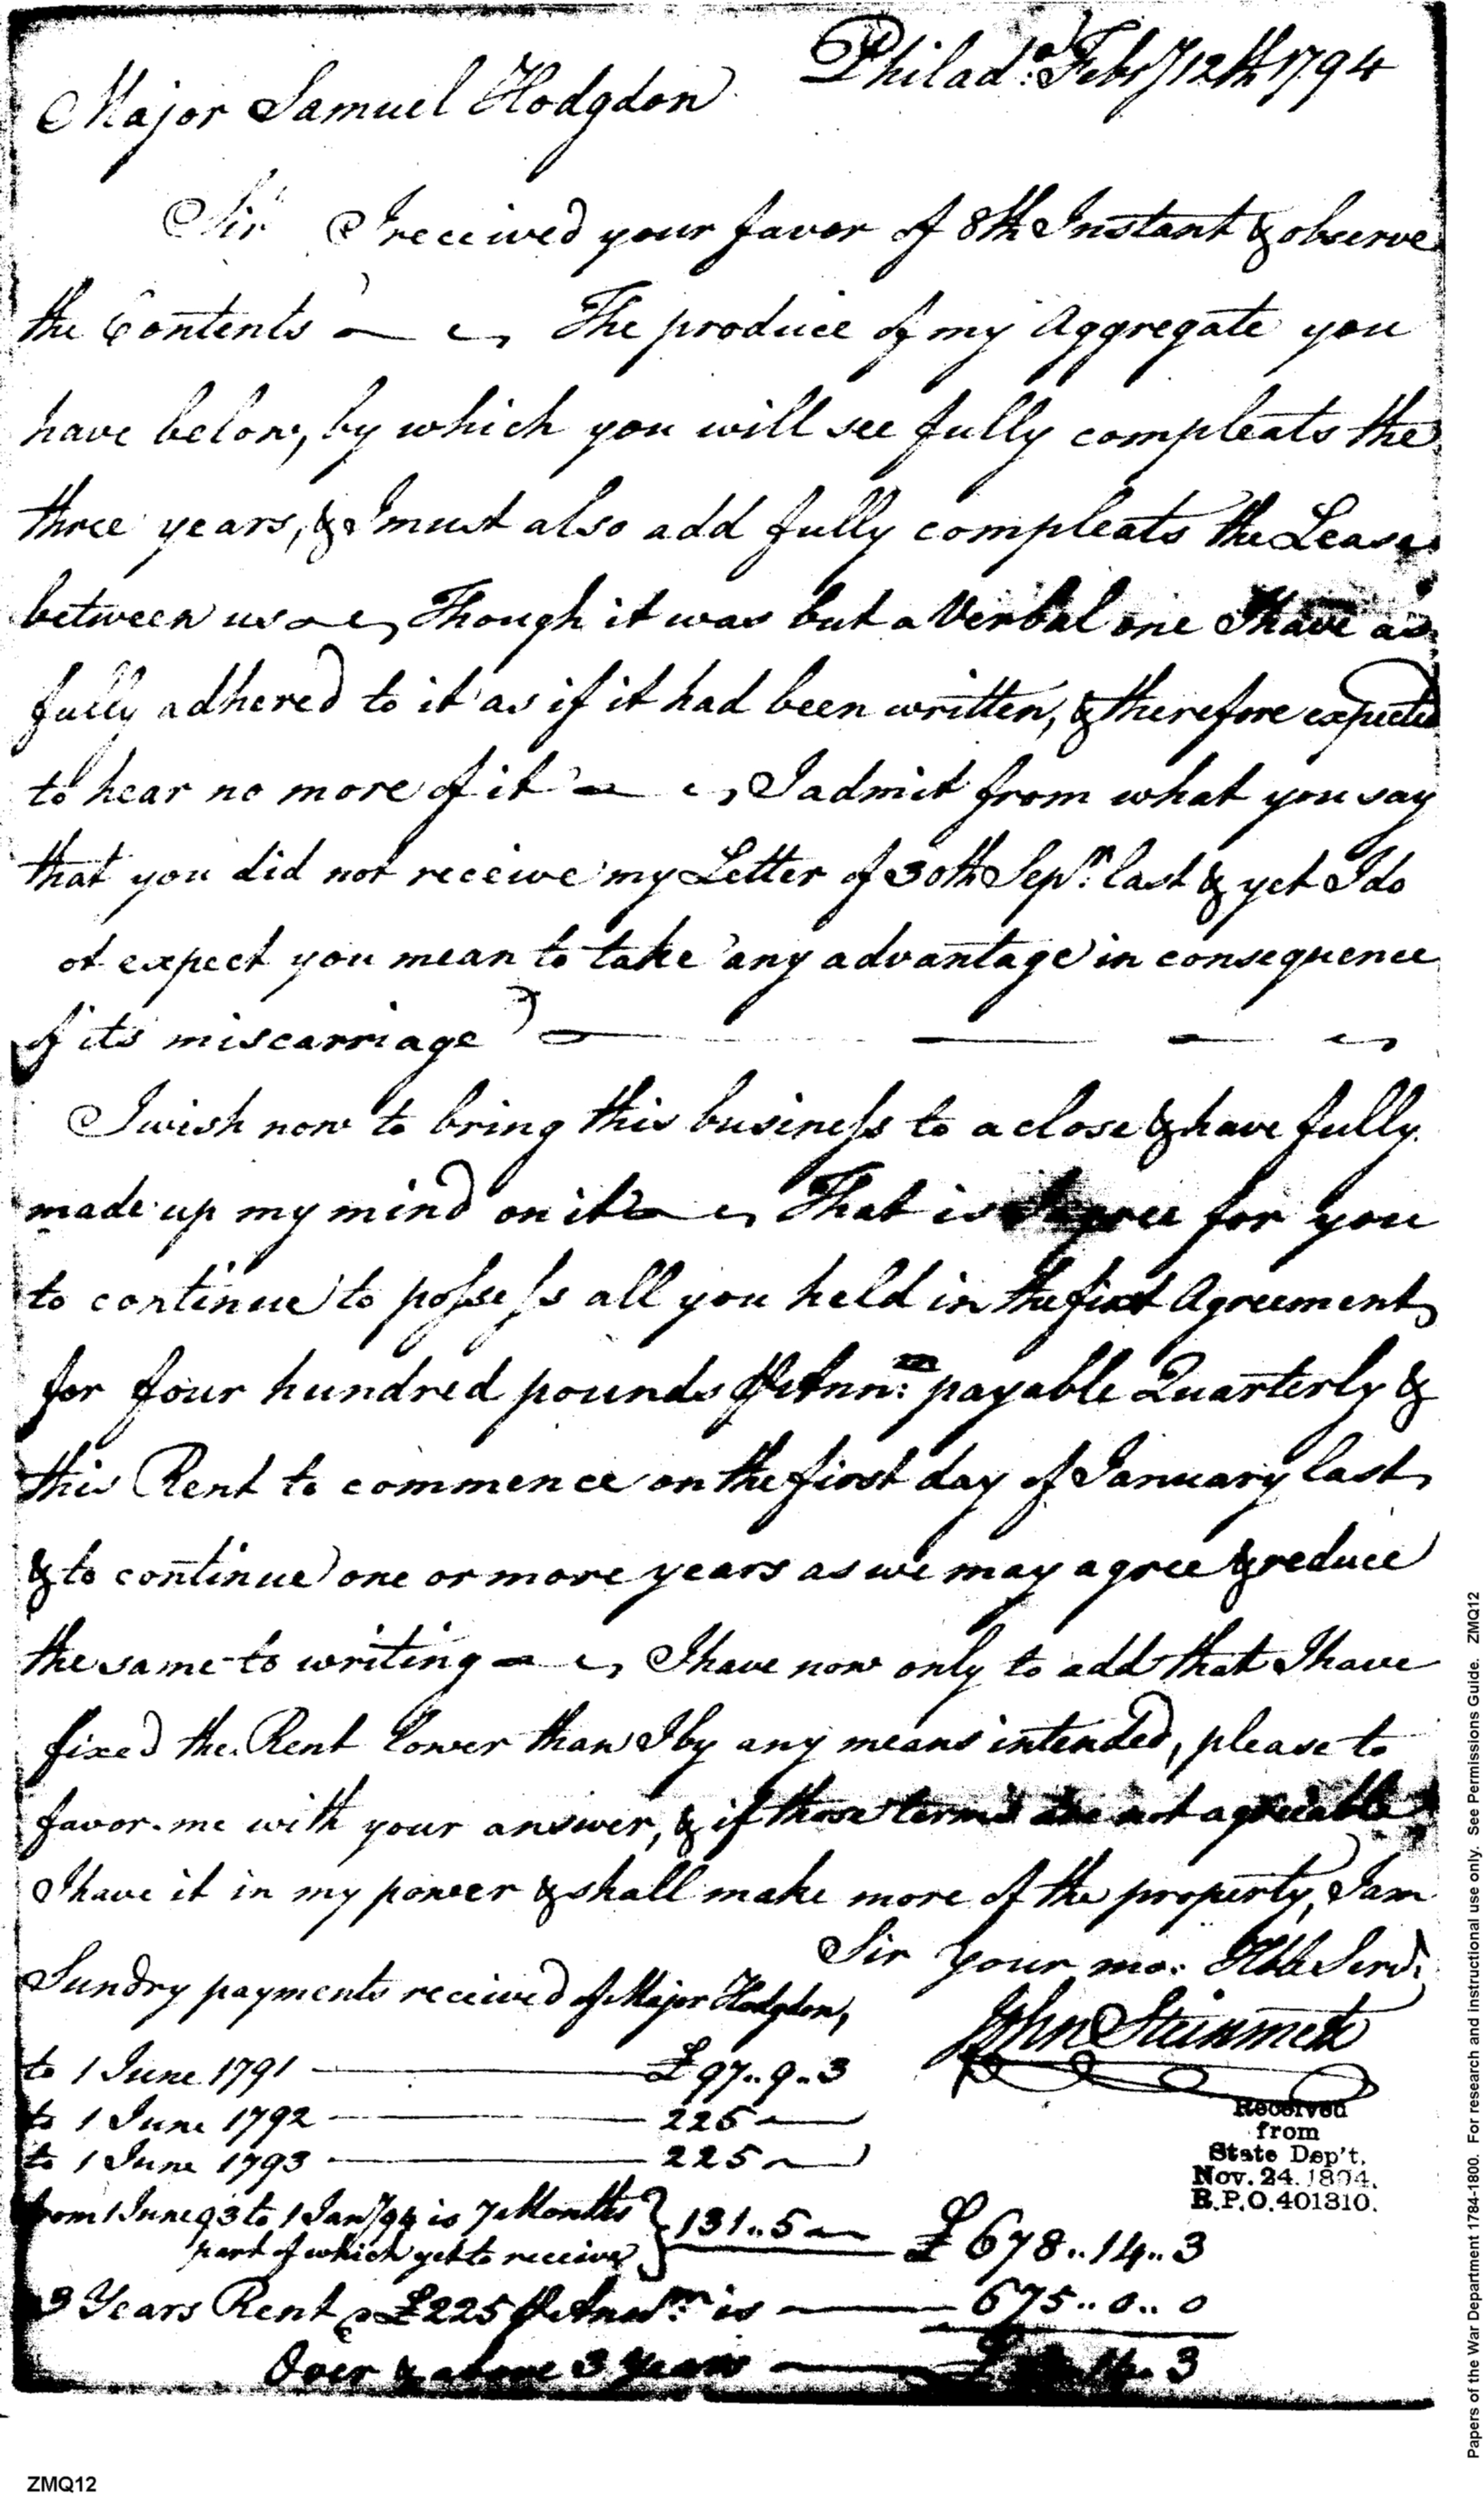 Philad.a Feby 12th 1794
Major Samuel Hodgdon
Sir I received your favor of 8th Instant & observe
the Contents — The produce of my Aggregate you
have below, by which you will see fully compleats the
three years, & I must also add fully compleats the Lease
between us — Though it was but a Verbal one I have as
fully adhered to it as if it had been written, & therefore expected
to hear no more of it — I admit from what you say
that you did not receive my Letter of 30th Sep.r last & yet I do
ot expect you mean to take any advantage in consequence
of its miscarriage — — —
I wish now to bring this business to a close & have fully
made up my mind on it — That is I agree for you
to continue to possess all you held in the first Agreement
for four hundred pounds ⅌ Ann:m payable Quarterly &
this Rent to commence on the first day of January last,
& to continue one or more years as we may agree & reduce
the same to writing — I have now only to add that I have
fixed the Rent lower than I by any means intended, please to
favor me with your answer, & if those terms are not agreeable
I have it in my power & shall make more of the property, I am
Sir Your mo: Hble Servt
John Steinmetz
Sundry payments received of Major Hodgdon,
to 1 June 1791 — £97..9..3
to 1 June 1792 — 225 —
to 1 June 1793 — 225 —
from 1 June 93 to 1 Jany 94 is 7 Months
part of which yet to receive } 131..5 — £678..14..3
3 Years Rent @ £225 ⅌ Ann.m is — 675..0..0
Over & above 3 Years — £ 14..3
Received
from
State Dep't.
Nov. 24. 1894.
R.P.O. 401310.
Papers of the War Department 1784-1800. For research and instructional use only. See Permissions Guide. ZMQ12
ZMQ12